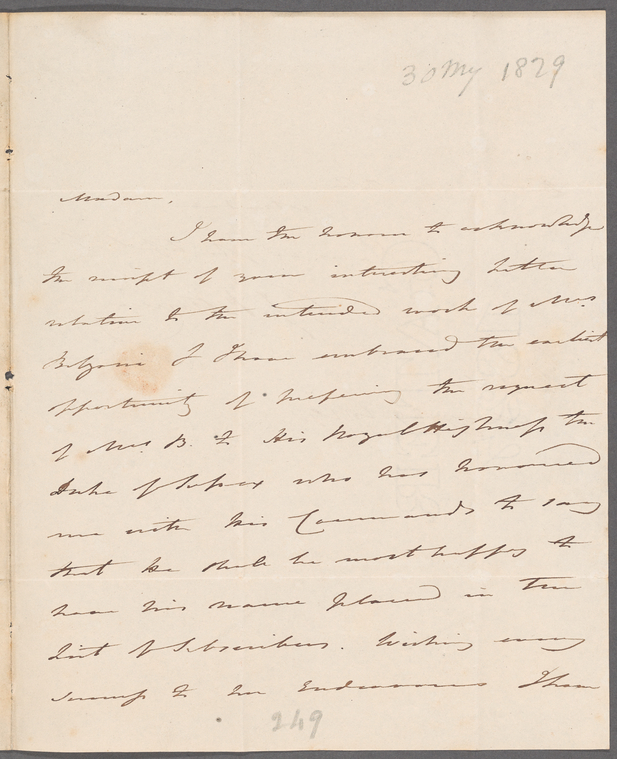 30 My 1829
Madam,
I have the honour to acknowledge
the receipt of your interesting Letter
relative to the intended work of Mrs
Belzoni I have embraced the earliest
opportunity of preferring the request
of Mrs. B. to His Royal Highness the
Duke of Sussex who has honoured
me with his Commands to say
that he shall be most happy to
have his name placed in the
List of Subscribers. Wishing every
success to her Endeavours I have
249